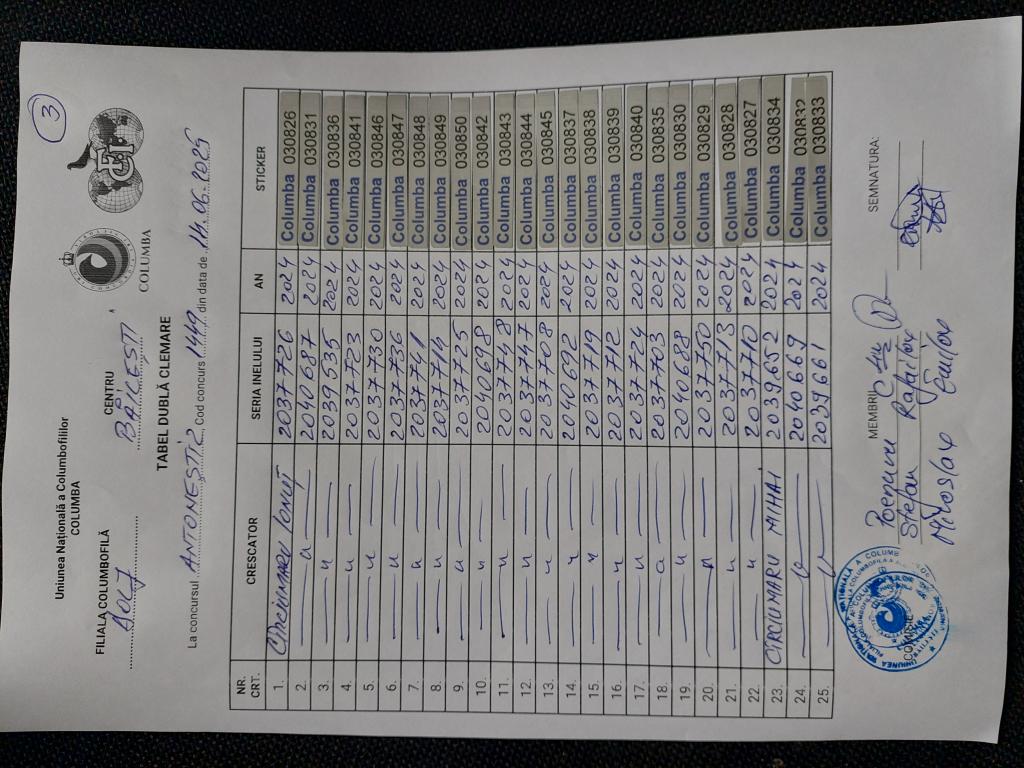 3
Uniunea Națională a Columbofililor
COLUMBA
COLUMBA
FILIALA COLUMBOFILĂ CENTRU
DOLJ BĂILEȘTI
TABEL DUBLĂ CLEMARE
La concursul ANTONEȘTI 2, Cod concurs 1449 din data de 14.06.2025
NR. CRT. CRESCATOR SERIA INELULUI AN STICKER
1. Cîrciumaru Ionuț 2037726 2024 Columba 030826
2. — u — 2040687 2024 Columba 030831
3. — u — 2039535 2024 Columba 030836
4. — u — 2037723 2024 Columba 030841
5. — u — 2037730 2024 Columba 030846
6. — u — 2037736 2024 Columba 030847
7. — u — 2037741 2024 Columba 030848
8. — u — 2037714 2024 Columba 030849
9. — u — 2037725 2024 Columba 030850
10. — u — 2040698 2024 Columba 030842
11. — u — 2037748 2024 Columba 030843
12. — u — 2037747 2024 Columba 030844
13. — u — 2037708 2024 Columba 030845
14. — u — 2040692 2024 Columba 030837
15. — u — 2037719 2024 Columba 030838
16. — u — 2037712 2024 Columba 030839
17. — u — 2037724 2024 Columba 030840
18. — u — 2037703 2024 Columba 030835
19. — u — 2040688 2024 Columba 030830
20. — u — 2037750 2024 Columba 030829
21. — u — 2037713 2024 Columba 030828
22. — u — 2037710 2024 Columba 030827
23. CÎRCIUMARU MIHAI 2039652 2024 Columba 030834
24. — u — 2040669 2024 Columba 030832
25. — u — 2039661 2024 Columba 030833
MEMBRII SEMNATURA:
Stefan